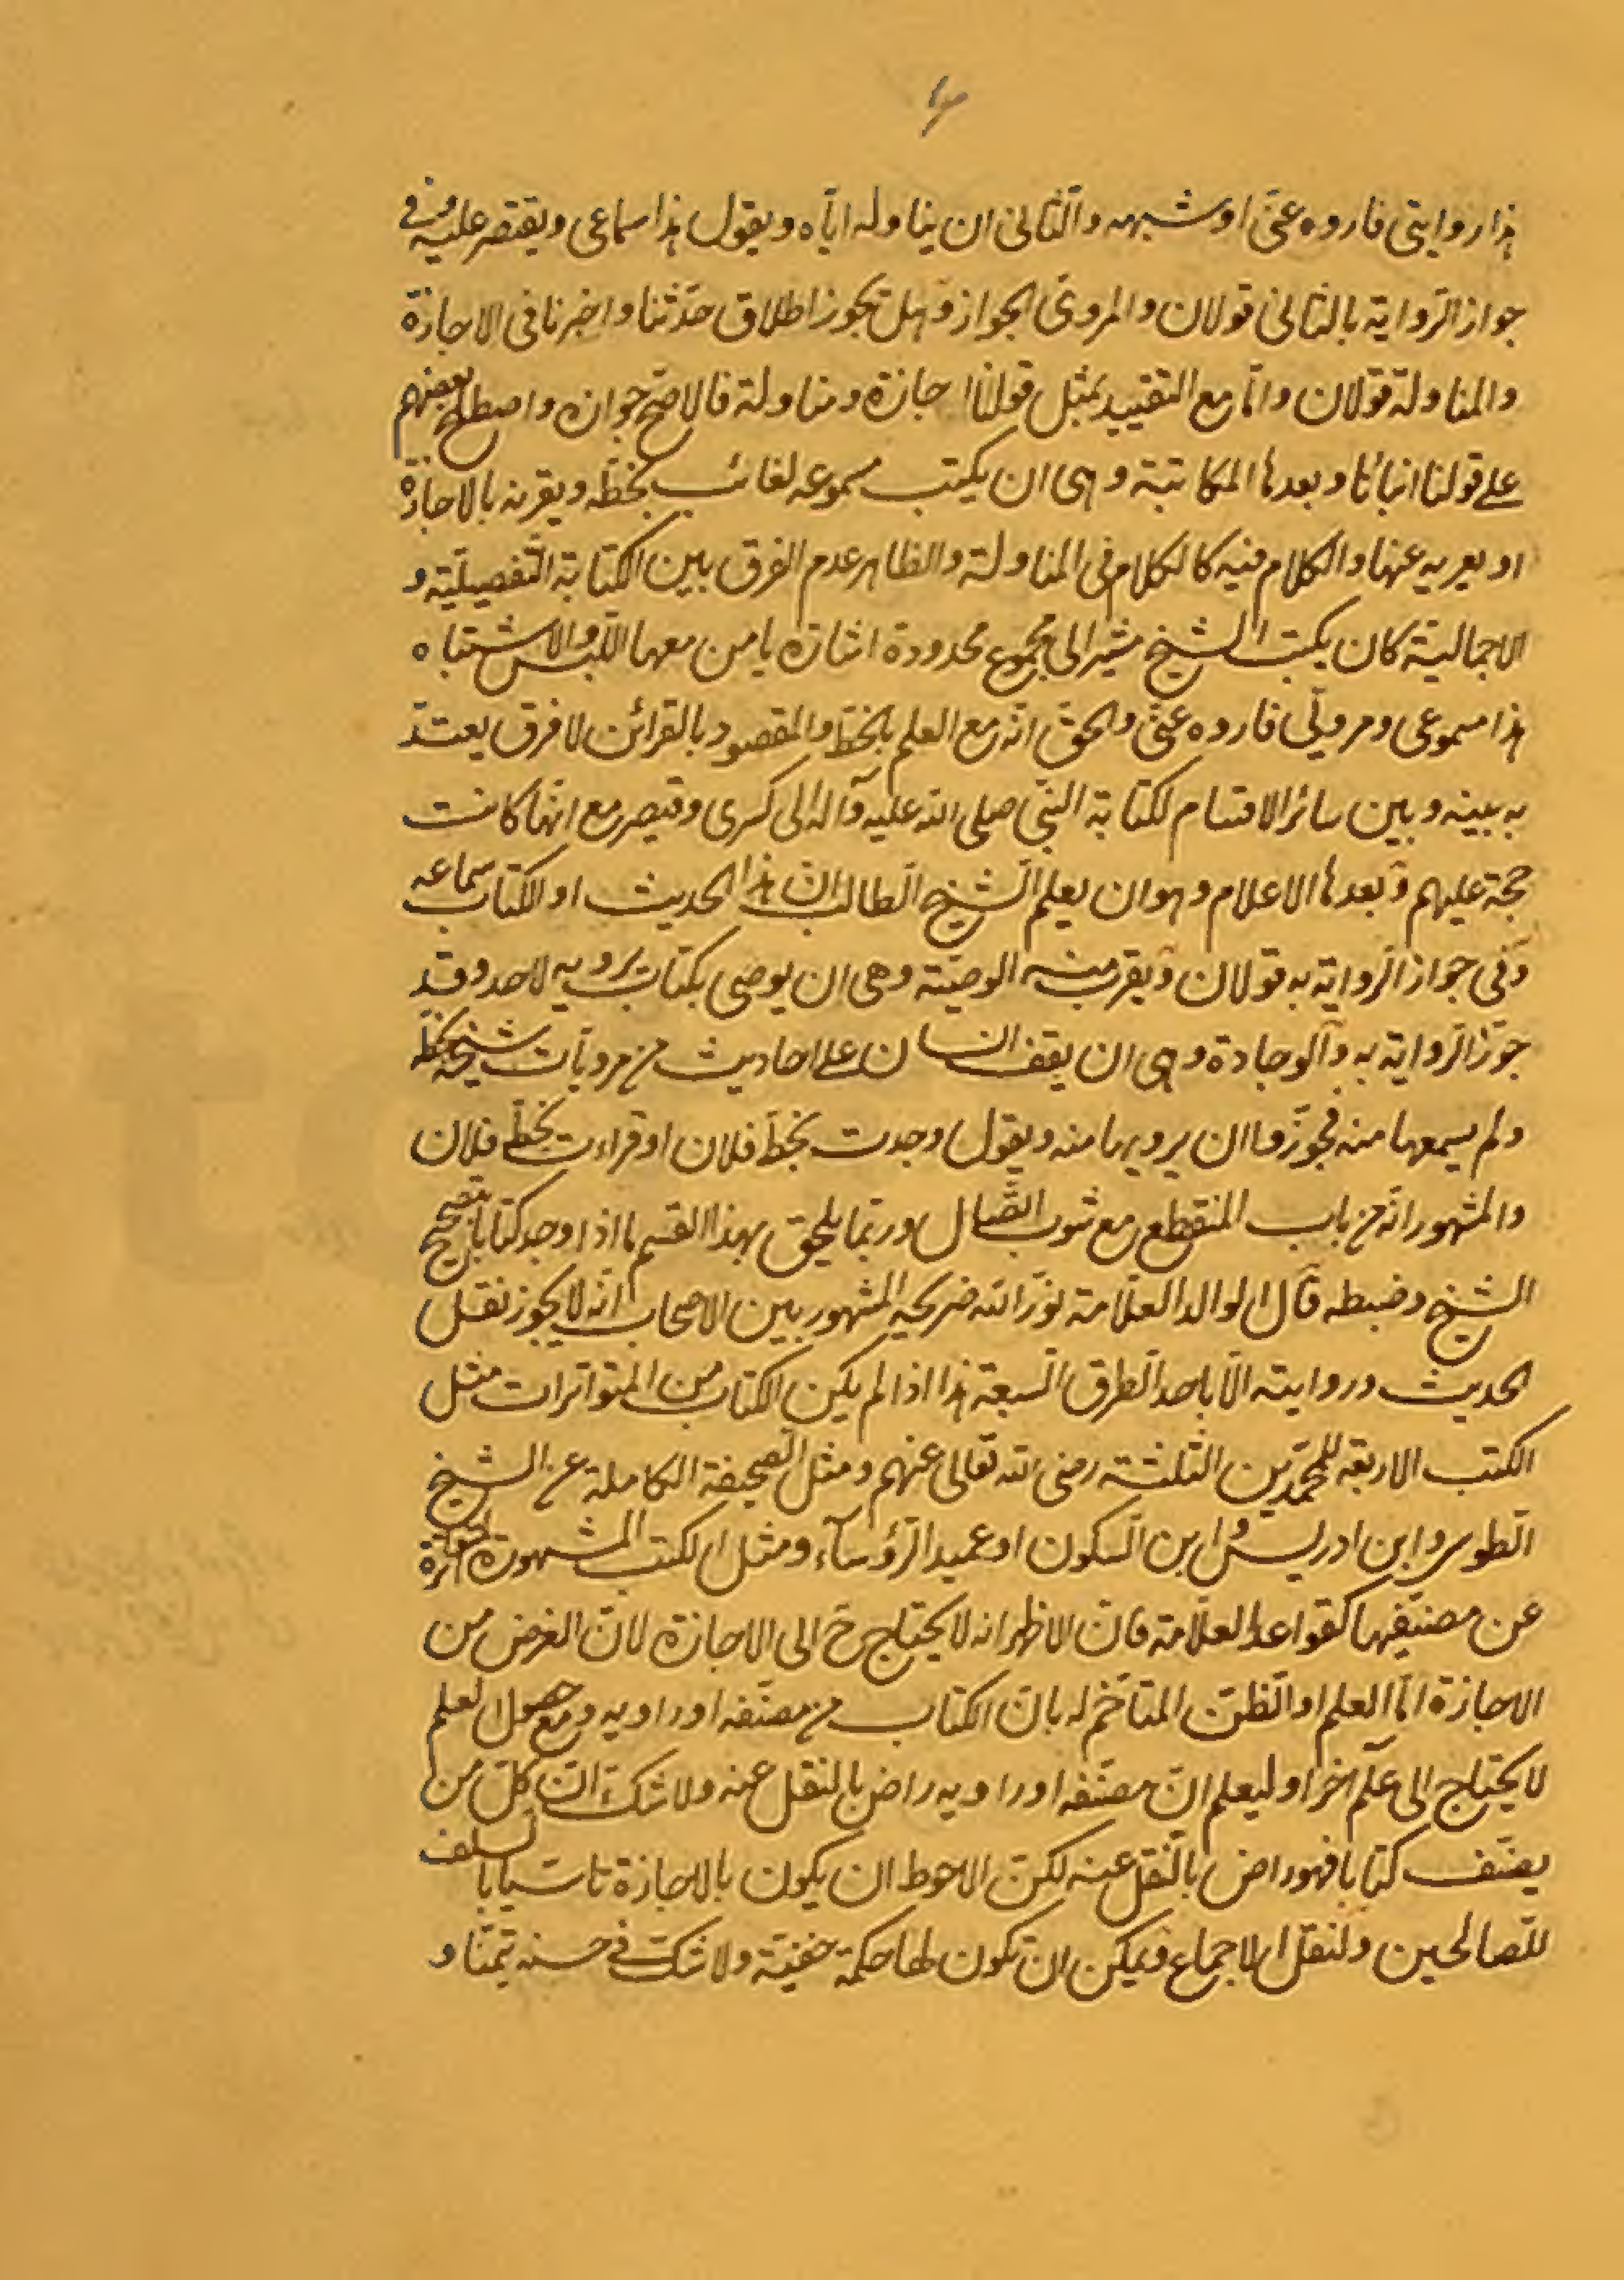 هذا روايتي فاروه عنّي او شبهه والثّاني ان يناوله ايّاه ويقول هذا سماعي ويقتصر عليه وفي
جواز الرّواية بالثاني قولان والمروىّ الجواز وهل يجوز اطلاق حدّثنا واخبرنا في الاجازة
والمناولة قولان وامّا مع التقييد بمثل قولنا اجازة ومناولة فالاصّح جوازه واصطلح بعضهم
على قولنا انبأنا وبعدها المكاتبة وهي ان يكتب مسموعه لغائب بخطّه ويقرنه بالاجازة
او يعريه عنها والكلام فيه كالكلام في المناولة والظاهر عدم الفرق بين الكتابة التّفصيليّة و
الاجماليّة كان يكتب الشيخ مشيرا الى مجموع محدودة اشارة يامن معها اللّبس والاشتباه
هذا مسموعي ومرويّي فاروه عنّي والحقّ انّه مع العلم بالخطّ والمقصود بالقرائن لا فرق يعتدّ
به بينه وبين سائر الاقسام ككتابة النّبي صلى الله عليه وآله الى كسرى وقيصر مع انّها كانت
حجة عليهم وبعدها الاعلام وهو ان يعلم الشّيخ الطالب ان هذا الحديث او الكتاب سماعه
وفي جواز الرّواية به قولان ويقرب منه الوصيّة وهي ان يوصى بكتاب يرويه لاحد وقد
جوّز الرّواية به والوجادة وهي ان يقف انسان على احاديث من مرويات شيخ بخطّه
ولم يسمعها منه فجوّزوا ان يرويها منه ويقول وجدت بخطّ فلان او قراءت بخطّ فلان
والمشهور انّه من باب المنقطع مع شوب اتّصال وربّما يلحق بهذا القسم ما اذا وجد كتابا بتصحيح
الشيخ وضبطه قال الوالد العلّامة نوّر الله ضريحه المشهور بين الاصحاب انّه لا يجوز نقل
الحديث وروايته الّا باحد الطرق السّبعة هذا اذا لم يكن الكتاب من المتواترات مثل
الكتب الاربعة للمحمّدين الثلثة رضى الله تعالى عنهم ومثل الصّحيفة الكاملة عن الشيخ
الطّوسي وابن ادريس وابن السّكون او عميد الرّؤساء ومثل الكتب المشهورة المتواترة
عن مصنّفيها كقواعد العلّامة فانّ الاظهر انه لا يحتاج ح الى الاجازة لانّ الغرض من
الاجازة امّا العلم او الظّنّ المتاخم له بانّ الكتاب من مصنّفه او راويه ومع حصول العلم
لا يحتاج الى علم آخر او ليعلم انّ مصنّفه او راويه راض بالنقل عنه ولا شكّ انّ كلّ من
يصنّف كتابا فهو راض بالنّقل عنه لكنّ الاحوط ان يكون بالاجازة تاسّيا بالسلف
للصّالحين ولنقل الاجماع ويمكن ان تكون لها حكمة خفيّة ولا شك في حسنه تيمّنا و